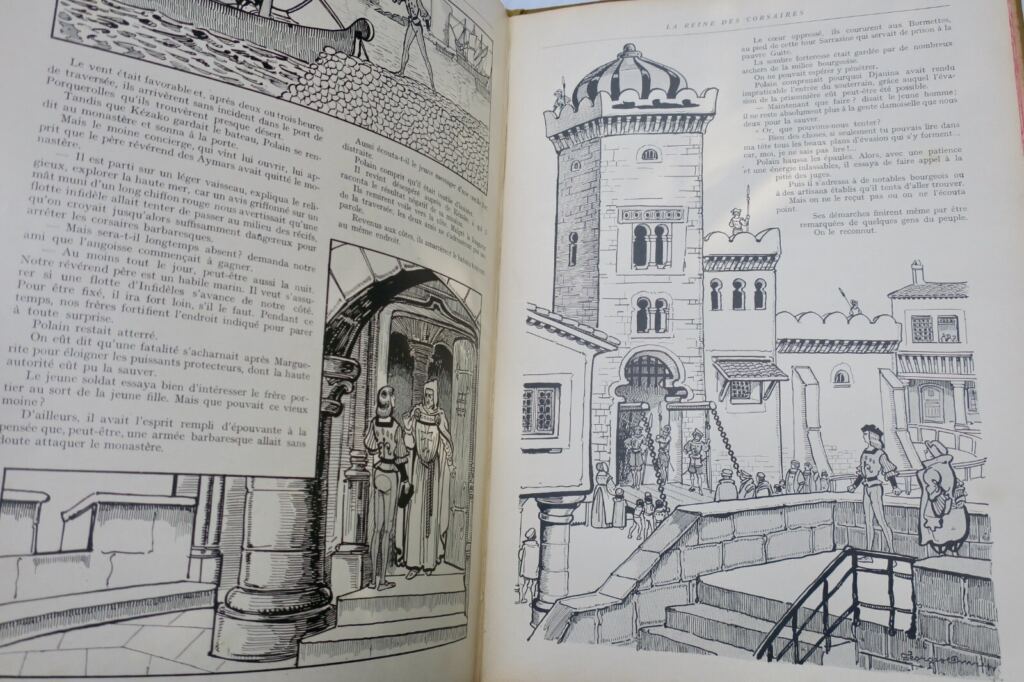 Le vent était favorable et, après deux ou trois heures
de traversée, ils arrivèrent sans incident dans le port de
Porquerolles qu'ils trouvèrent presque désert.
Tandis que Kézako gardait le bateau, Polain se ren-
dit au monastère et sonna à la porte.
Mais le moine concierge, qui vint lui ouvrir, lui ap-
prit que le père révérend des Aymars avait quitté le mo-
nastère.
— Il est parti sur un léger vaisseau, expliqua le reli-
gieux, explorer la haute mer, car un avis griffonné sur un
mât muni d'un long chiffon rouge nous avertissait qu'une
flotte infidèle allait tenter de passer au milieu des récifs,
qu'on croyait jusqu'alors suffisamment dangereux pour
arrêter les corsaires barbaresques.
— Mais sera-t-il longtemps absent? demanda notre
ami que l'angoisse commençait à gagner.
— Au moins tout le jour, peut-être aussi la nuit.
Notre révérend père est un habile marin. Il veut s'assu-
rer si une flotte d'Infidèles s'avance de notre côté.
Pour être fixé, il ira fort loin, s'il le faut. Pendant ce
temps, nos frères fortifient l'endroit indiqué pour parer
à toute surprise.
Polain restait atterré.
On eût dit qu'une fatalité s'acharnait après Margue-
rite pour éloigner les puissants protecteurs, dont la haute
autorité eût pu la sauver.
Le jeune soldat essaya bien d'intéresser le frère por-
tier au sort de la jeune fille. Mais que pouvait ce vieux
moine?
D'ailleurs, il avait l'esprit rempli d'épouvante à la
pensée que, peut-être, une armée barbaresque allait sans
doute attaquer le monastère.
Aussi écouta-t-il le jeune messager d'une oreille
distraite.
Polain comprit qu'il était inutile d'insister.
Il revint désespéré auprès de Kézako, à qui il
raconta le résultat négatif de sa mission.
Ils remirent aussitôt à la voile. Malgré la longueur
de la traversée, les deux amis ne s'adressèrent pas une
parole.
Revenus aux côtes, ils amarrèrent le bateau
au même endroit.
LA REINE DES CORSAIRES
Le cœur oppressé, ils coururent aux Bormettes,
au pied de cette tour Sarrazine qui servait de prison à la
pauvre Guite.
La sombre forteresse était gardée par de nombreux
archers de la milice bourgeoise.
On ne pouvait espérer y pénétrer.
Polain comprenait pourquoi Djanina avait rendu
impraticable l'entrée du souterrain, grâce auquel l'éva-
sion de la prisonnière eût peut-être été possible.
— Maintenant que faire? disait le jeune homme;
il ne reste absolument plus à la gente damoiselle que nous
deux pour la sauver.
« Or, que pouvons-nous tenter?
— Bien des choses, si seulement tu pouvais lire dans
ma tête tous les beaux plans d'évasion qui s'y forment...
car, moi, je ne sais pas lire!...
Polain haussa les épaules. Alors, avec une patience
et une énergie inlassables, il essaya de faire appel à la
pitié des juges.
Puis il s'adressa à de notables bourgeois ou
à des artisans établis qu'il tenta d'aller trouver.
Mais on ne le reçut pas ou on ne l'écouta
point.
Ses démarches finirent même par être
remarquées de quelques gens du peuple.
On le reconnut.